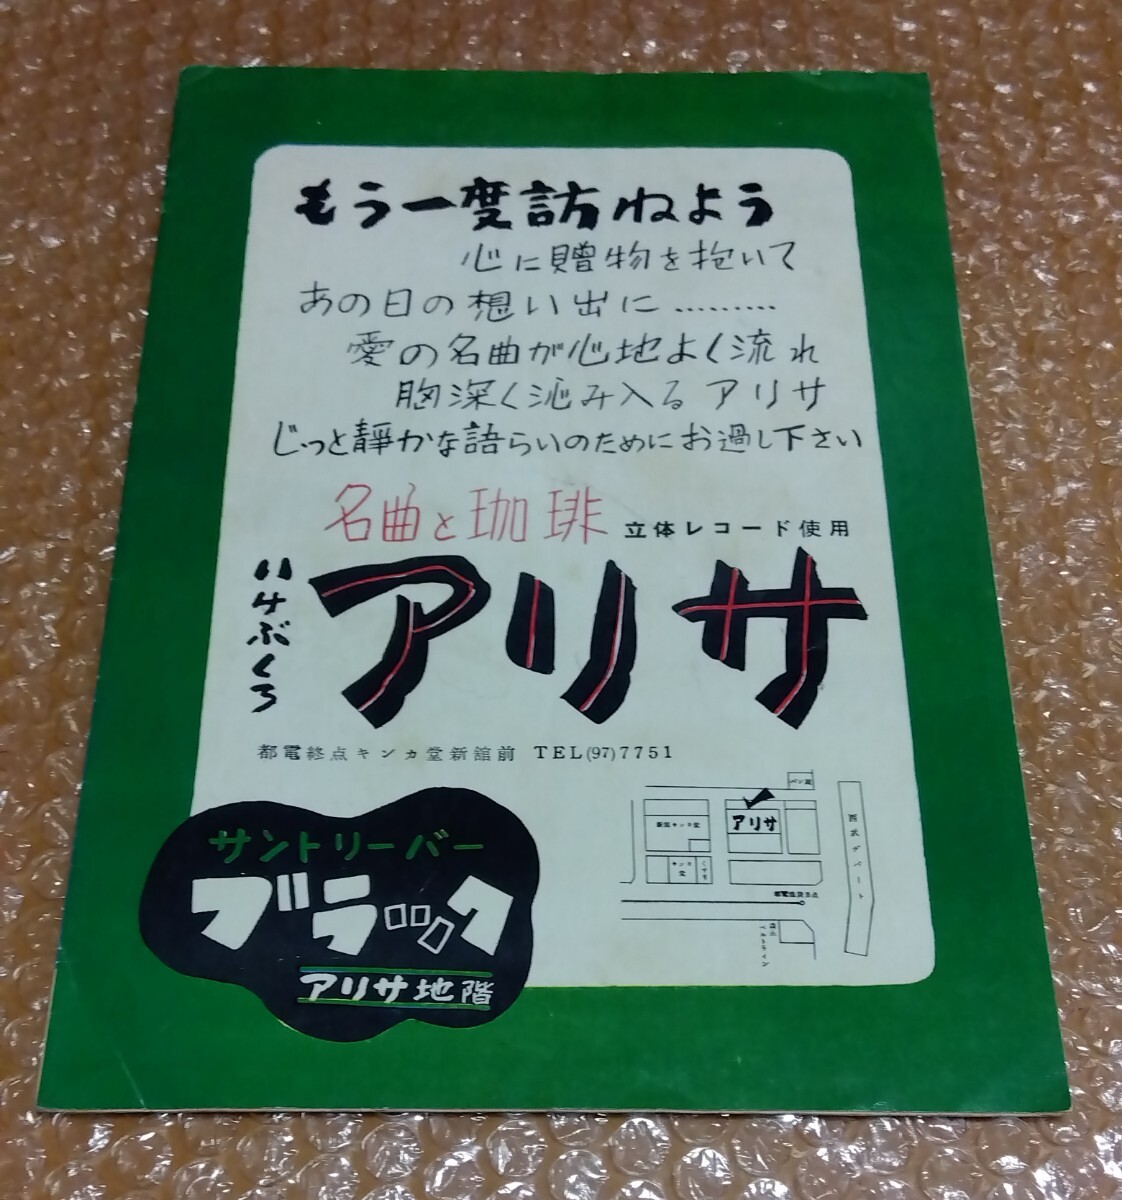 もう一度訪ねよう
心に贈物を抱いて
あの日の想い出に………
愛の名曲が心地よく流れ
胸深く沁み入るアリサ
じっと静かな語らいのためにお過し下さい
名曲と珈琲
立体レコード使用
いけぶくろ
アリサ
都電終点キンカ堂新館前 TEL(97)7751
サントリーバー
ブラック
アリサ地階
アリサ
西武デパート
キンカ堂